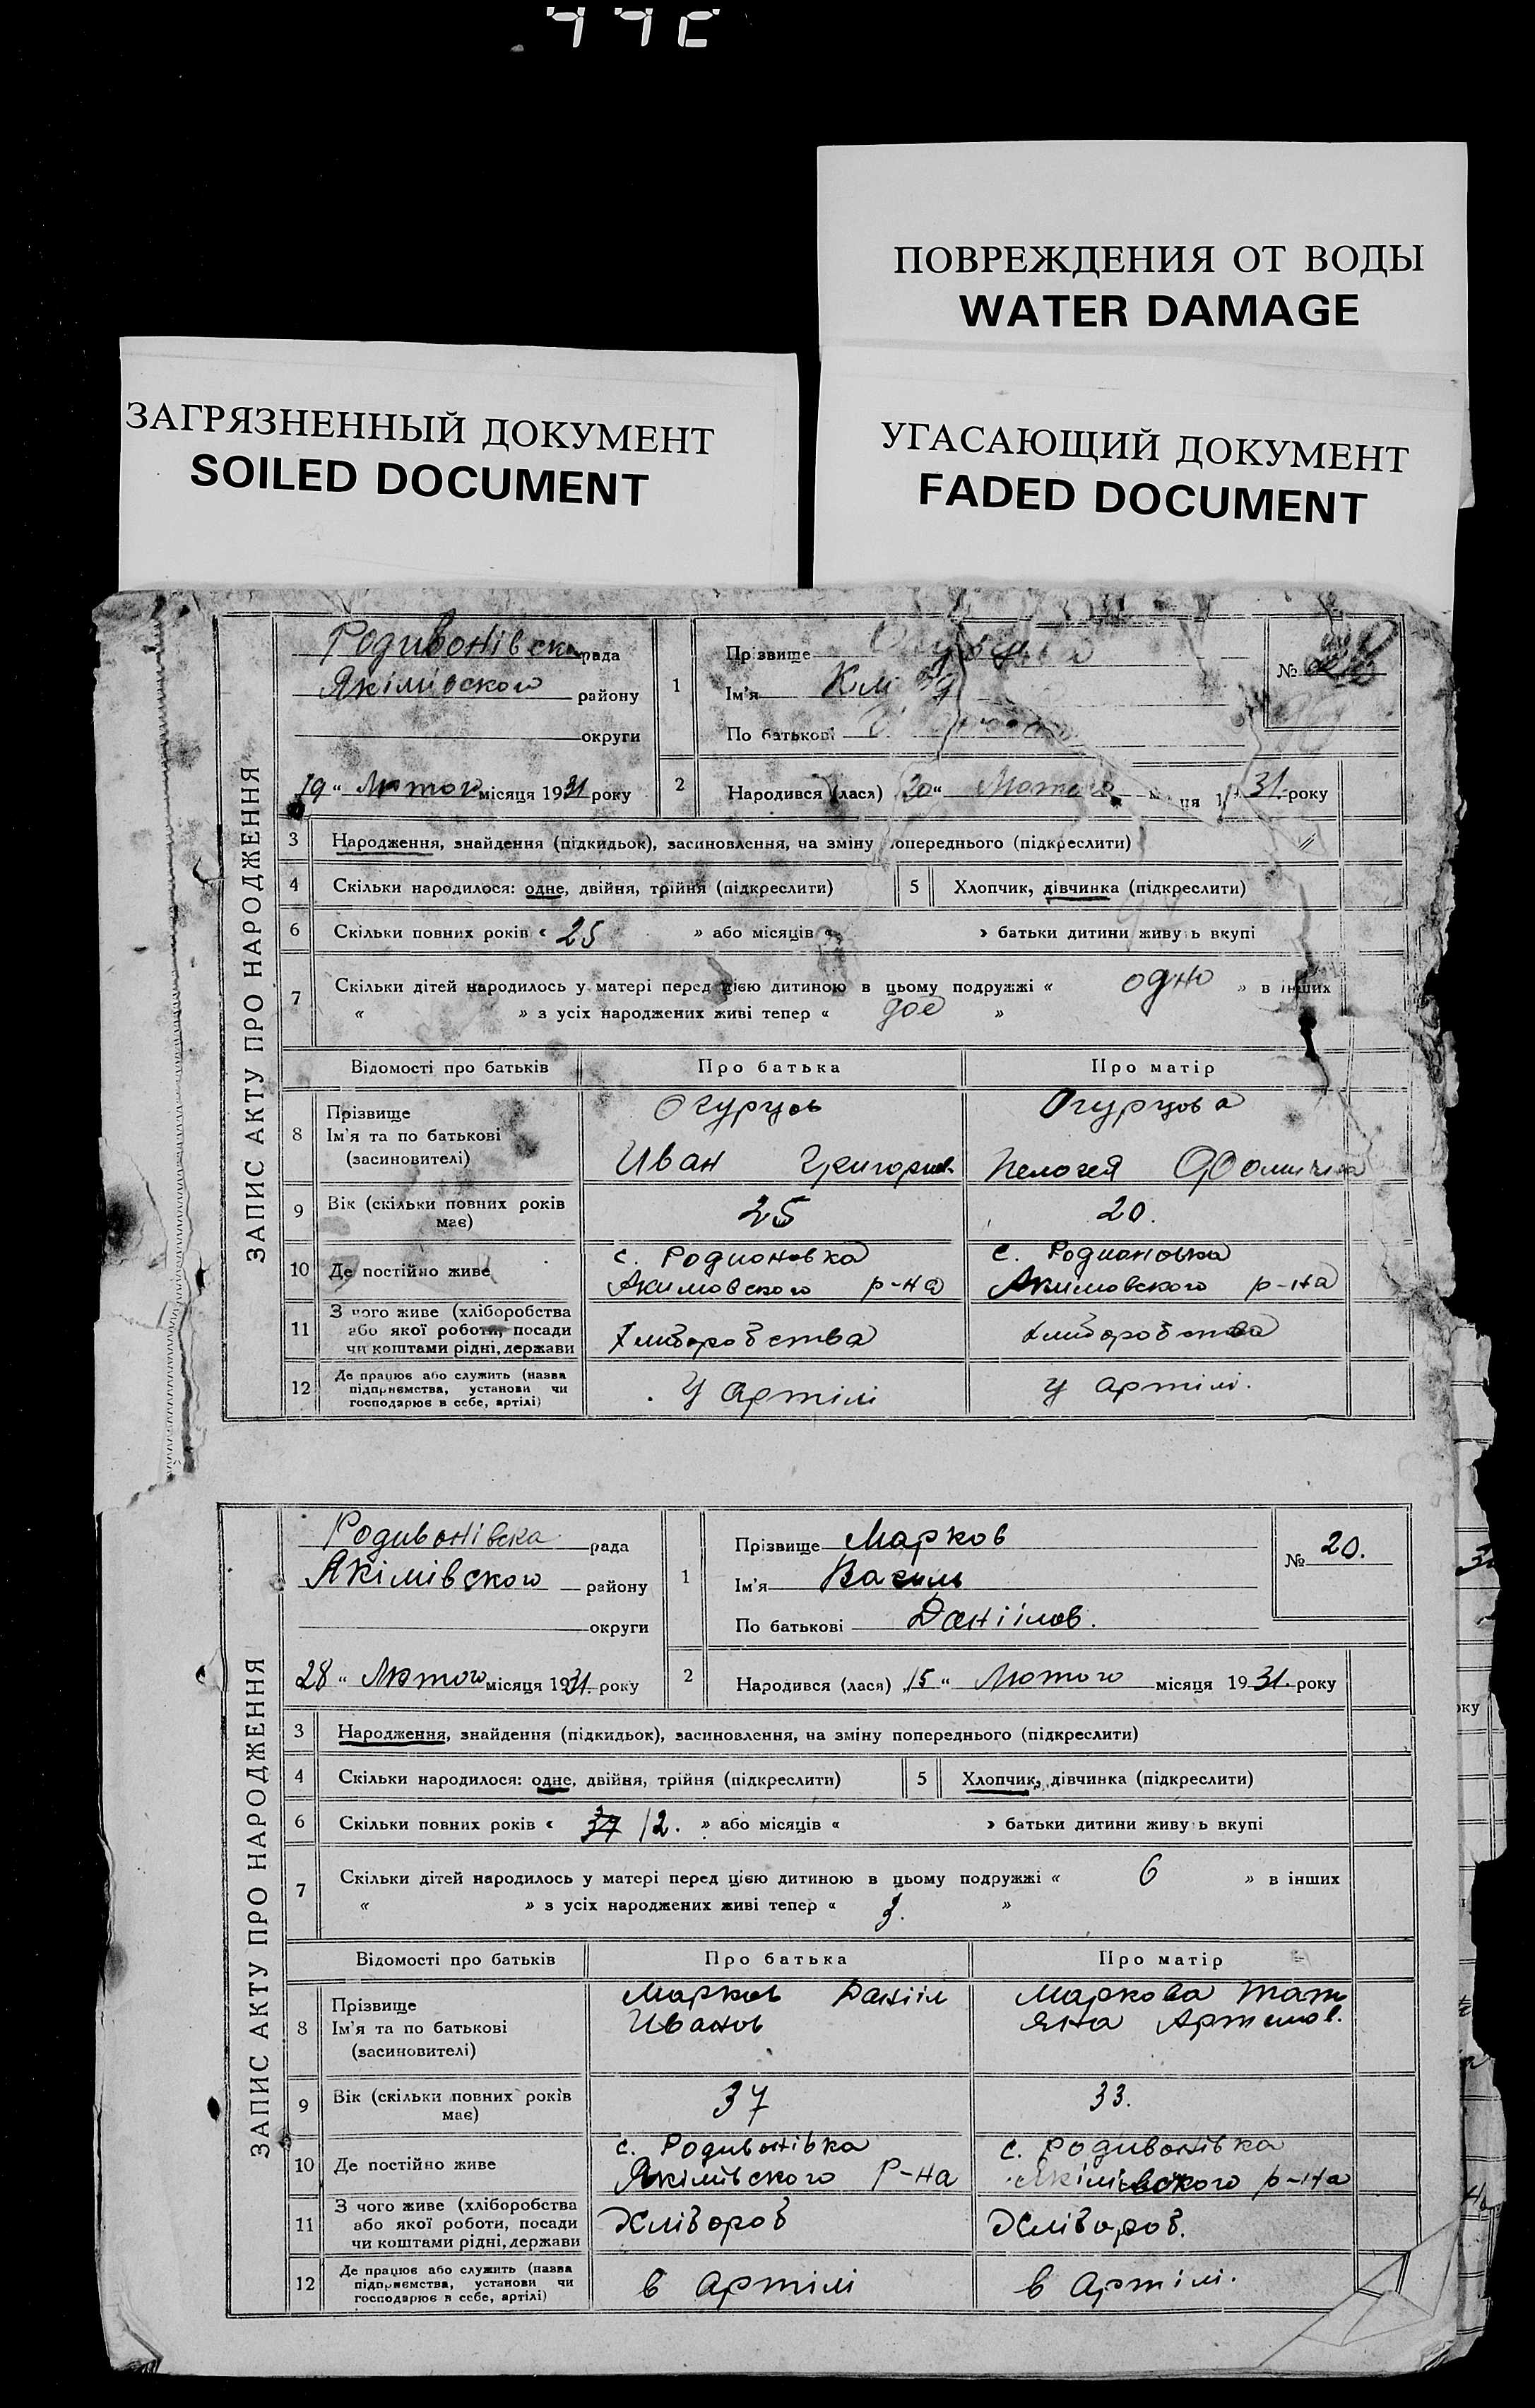 ПОВРЕЖДЕНИЯ ОТ ВОДЫ
WATER DAMAGE
ЗАГРЯЗНЕННЫЙ ДОКУМЕНТ
SOILED DOCUMENT
УГАСАЮЩИЙ ДОКУМЕНТ
FADED DOCUMENT
ЗАПИС АКТУ ПРО НАРОДЖЕННЯ
Родивонівска рада
Якімівского району
округи
19 " Лютого місяця 1931 року
1
Прізвище
Ім'я
По батькові
№
2
Народився (лася) Лютого 31. року
3 Народження, знайдення (підкидьок), засиновлення, на зміну попереднього (підкреслити)
4 Скільки народилося: одне, двійня, трійня (підкреслити)
5 Хлопчик, дівчинка (підкреслити)
6 Скільки повних років « 25 » або місяців « » батьки дитини живуть вкупі
7 Скільки дітей народилось у матері перед цією дитиною в цьому подружжі « одно » в інших
« » з усіх народжених живі тепер « »
Відомості про батьків Про батька Про матір
8 Прізвище
Ім'я та по батькові
(засиновителі)
Огурцов
Иван Григориев.
Огурцова
Пелогея Фомична
9 Вік (скільки повних років має) 25 20.
10 Де постійно живе
с. Родионовка
Акимовского р-на
с. Родионовка
Акимовского р-на
11 З чого живе (хліборобства
або якої роботи, посади
чи коштами рідні, держави
Хлиборобства
Хлиборобства
12 Де працює або служить (назва
підприємства, установи чи
господарює в себе, артілі)
У артілі
у артілі.
ЗАПИС АКТУ ПРО НАРОДЖЕННЯ
Родивонівска рада
Якімівского району
округи
28 " Лютого місяця 1931. року
1
Прізвище Марков
Ім'я Василь
По батькові Даніілов.
№ 20.
2
Народився (лася) „15 " Лютого місяця 1931. року
3 Народження, знайдення (підкидьок), засиновлення, на зміну попереднього (підкреслити)
4 Скільки народилося: одне, двійня, трійня (підкреслити)
5 Хлопчик, дівчинка (підкреслити)
6 Скільки повних років « 37 12. » або місяців « » батьки дитини живуть вкупі
7 Скільки дітей народилось у матері перед цією дитиною в цьому подружжі « 6 » в інших
« » з усіх народжених живі тепер « 3. »
Відомості про батьків Про батька Про матір
8 Прізвище
Ім'я та по батькові
(засиновителі)
Марков Данііл
Иванов
Маркова Тать
яна Артемов.
9 Вік (скільки повних років має) 37 33.
10 Де постійно живе
с. Родивонівка
Якімівского Р-на
с. Родивонівка
Якімівского р-на
11 З чого живе (хліборобства
або якої роботи, посади
чи коштами рідні, держави
Хлібороб
Хлібороб.
12 Де працює або служить (назва
підприємства, установи чи
господарює в себе, артілі)
в артілі
в артілі.